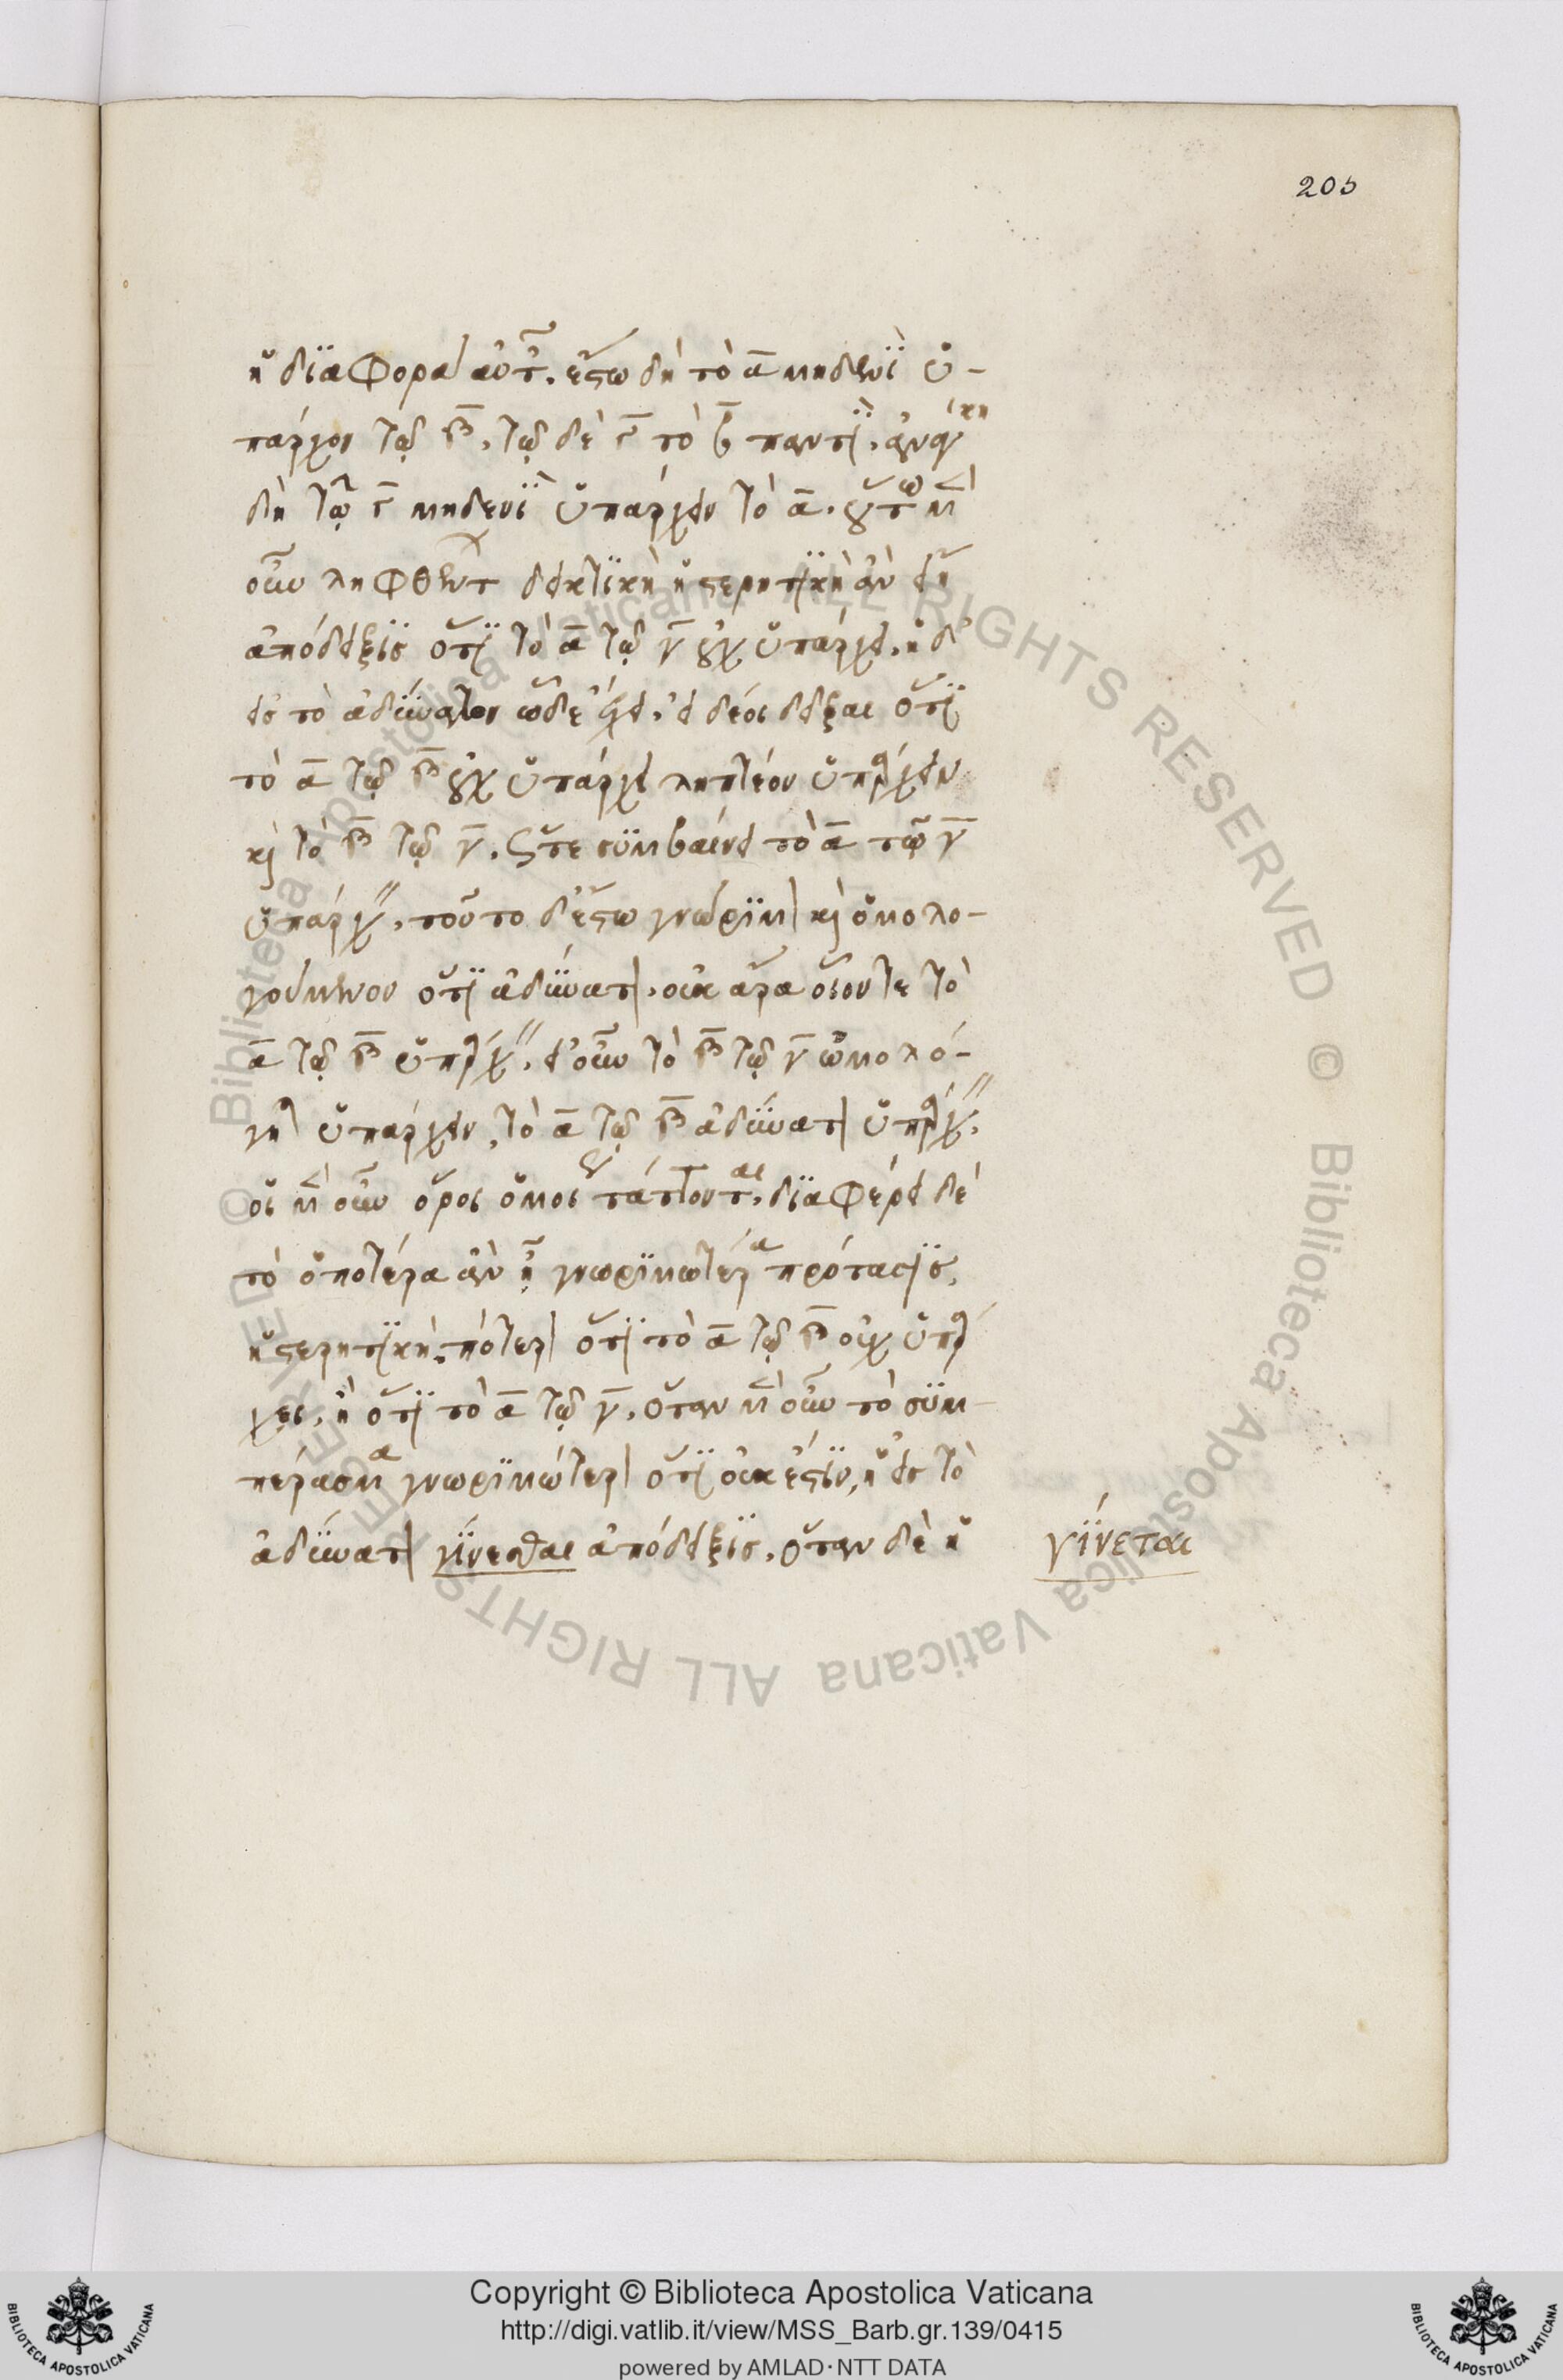 205
ἡ διαφορὰ αὐτῶν. ἔστω δὴ τὸ α μηδενὶ ὑ-
πάρχον τῷ β, τῷ δὲ γ τὸ β παντί. ἀνάγκη
δὴ τῷ γ μηδενὶ ὑπάρχειν τὸ α. οὕτω μὲν
οὖν ληφθέντων δεικτικὴ ἡ στερητικὴ ἂν εἴη
ἀπόδειξις ὅτι τὸ α τῷ γ οὐχ ὑπάρχει. ἡ δ'
εἰς τὸ ἀδύνατον ὧδε ἔχει. εἰ δέοι δεῖξαι ὅτι
τὸ α τῷ β οὐχ ὑπάρχει ληπτέον ὑπάρχειν
καὶ τὸ β τῷ γ. ὥστε συμβαίνει τὸ α τῷ γ
ὑπάρχειν. τοῦτο δ' ἔστω γνώριμον καὶ ὁμολο-
γούμενον ὅτι ἀδύνατον. οὐκ ἄρα οἷόν τε τὸ
α τῷ β ὑπάρχειν. εἰ οὖν τὸ β τῷ γ ὡμολό-
γηται ὑπάρχειν, τὸ α τῷ β ἀδύνατον ὑπάρχειν.
οἱ μὲν οὖν ὅροι ὁμοίως τάττονται. διαφέρει δὲ
τὸ ὁποτέρα ἂν ᾖ γνωριμωτέρα πρότασις,
ἡ στερητικὴ. πότερον ὅτι τὸ α τῷ β οὐχ ὑπάρ
χει, ἢ ὅτι τὸ α τῷ γ. ὅταν μὲν οὖν τὸ συμ-
πέρασμα γνωριμώτερον ὅτι οὐκ ἔστιν, ἡ εἰς τὸ
ἀδύνατον γίνεσθαι ἀπόδειξις. ὅταν δὲ ἡ
γίνεται
© Biblioteca Apostolica Vaticana ALL RIGHTS RESERVED © Biblioteca Apostolica Vaticana ALL RIGHTS RESERVED
Copyright © Biblioteca Apostolica Vaticana
http://digi.vatlib.it/view/MSS_Barb.gr.139/0415
powered by AMLAD·NTT DATA
BIBLIOTECA APOSTOLICA VATICANA
BIBLIOTECA APOSTOLICA VATICANA